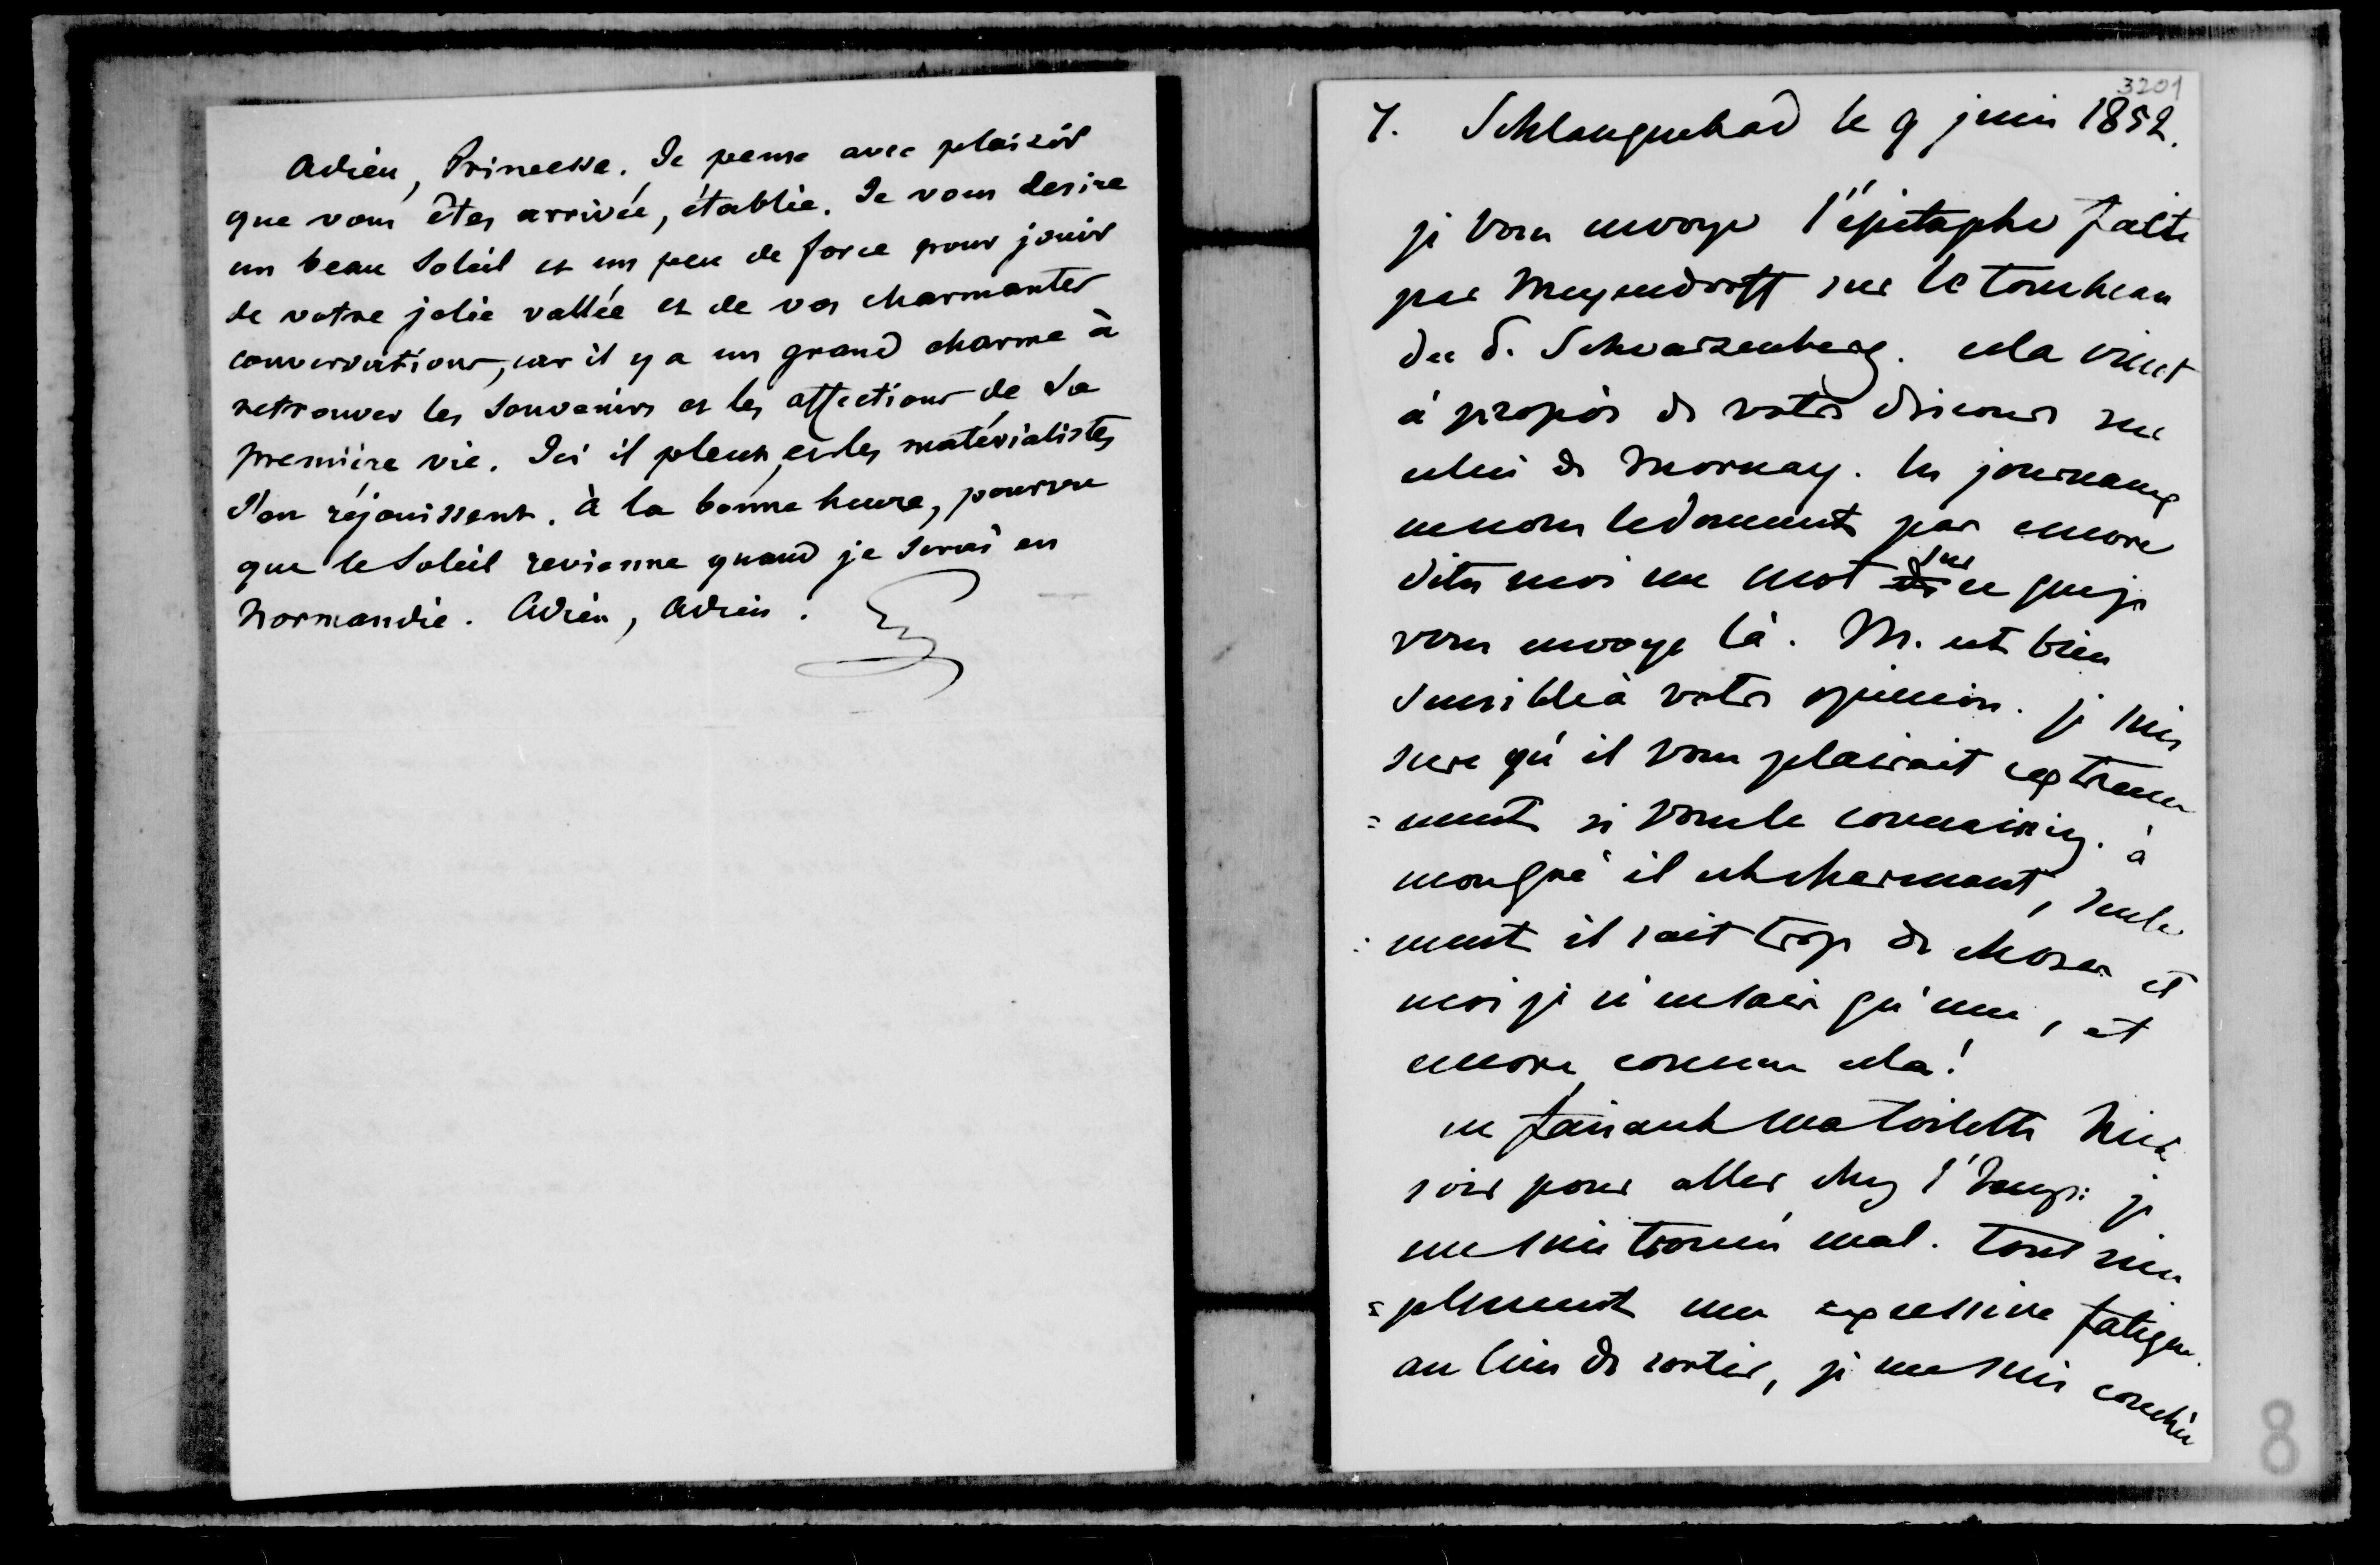 Adieu, Princesse. Je pense avec plaisir
que vous êtes arrivée, établie. Je vous desire
un beau Soleil et un peu de force pour jouir
de votre jolie vallée et de vos charmantes
conversations, car il y a un grand charme à
retrouver les Souvenirs et les affections de Sa
première vie. Ici il pleut, et les matérialistes
s'en réjouissent. à la bonne heure, pourvu
que le Soleil revienne quand je serai en
Normandie. Adieu, Adieu.
3201
7. Schlangenbad le 9 juin 1852.
je vous envoye l'épitaphe faite
par Meyendorff sur le tombeau
du P. Schwarzenberg. cela vient
à propos de votre discours sur
celui de Mornay. les journaux
ne nous le donnent pas encore
dites moi un mot sur ce que je
vous envoye là. M. est bien
sensible à votre opinion. je suis
sure qu'il vous plairait extreme
=ment si vous le connaissiez. à
mon gré il est charmant, seule
=ment il sait trop de choses et
moi je n'en sais qu'une, et
encore comme cela!
en faisant ma toilette hier
soir pour aller chez l'Imp: je
me suis trouvée mal. tout sim
=plement une excessive fatigue.
au lieu de sortir, je me suis couchée
8